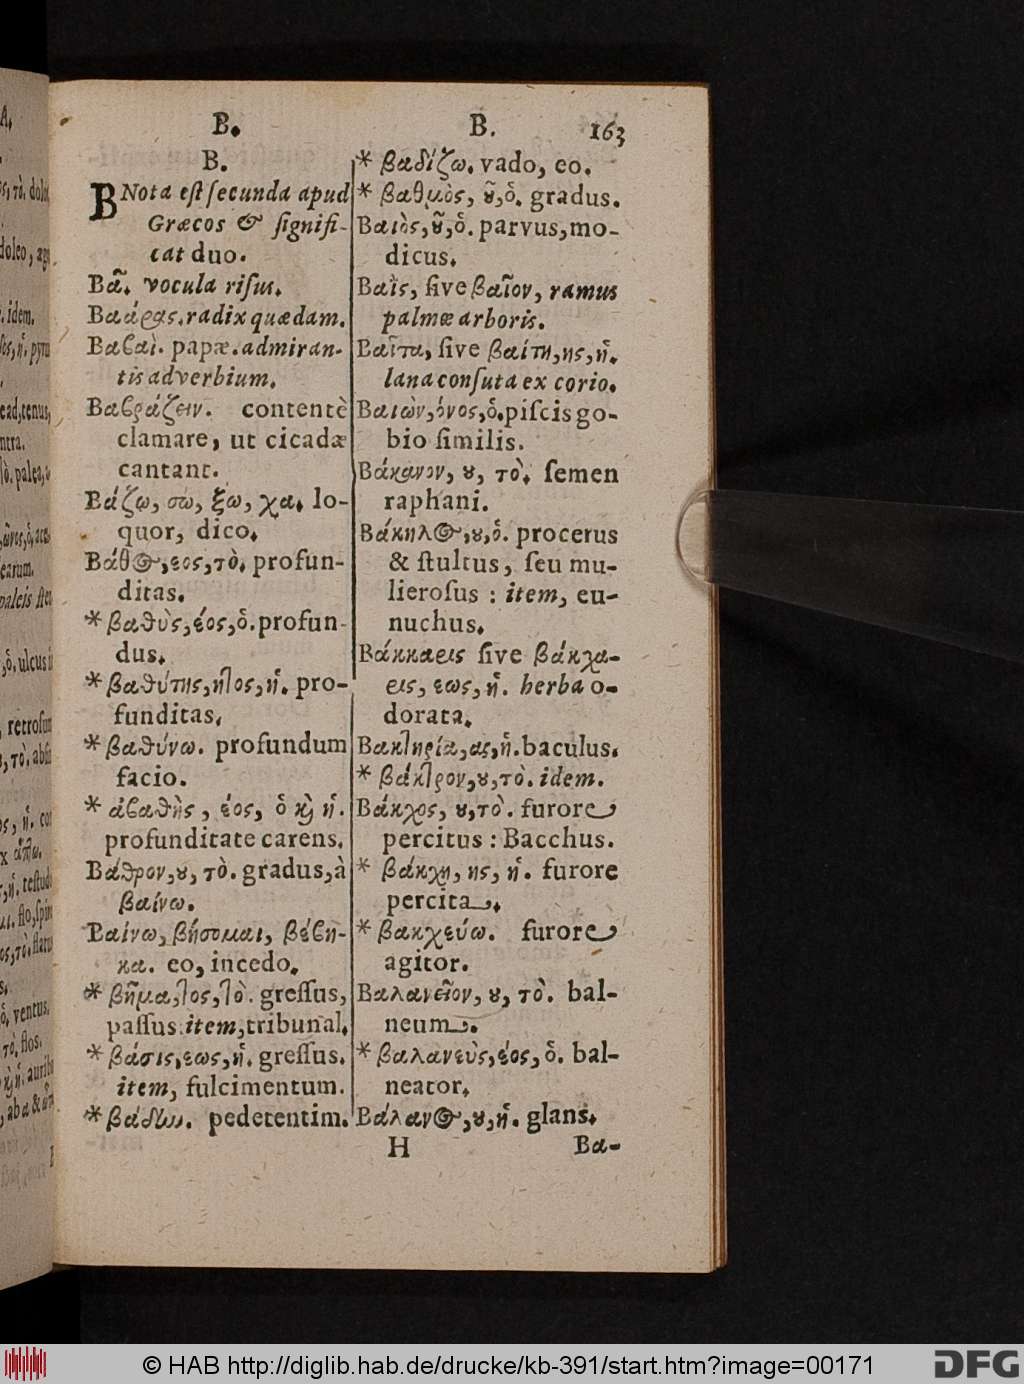 B.
B. 163
B.
B Nota est ſecunda apud
Græcos & ſignifi-
cat duo.
Βᾶ. vocula riſus.
Βαάρας. radix quædam.
Βαϐαὶ. papæ. admiran-
tis adverbium.
Βαϐράζειν. contentè
clamare, ut cicadæ
cantant.
Βάζω, σω, ξω, χα. lo-
quor, dico.
Βάθος, εος, τὸ. profun-
ditas.
* βαθὺς, έος, ὁ. profun-
dus.
* βαθύτης, ητος, ἡ. pro-
funditas.
* βαθύνω. profundum
facio.
* ἀϐαθὴς, έος, ὁ ϗ ἡ.
profunditate carens.
Βάθρον, ȣ, τὸ. gradus, à
βαίνω.
Βαίνω, βήσομαι, βέϐη-
κα. eo, incedo.
* βῆμα, τος, τὸ. greſſus,
paſſus: item, tribunal.
* βάσις, εως, ἡ. greſſus.
item, fulcimentum.
* βάδην. pedetentim.
* βαδίζω. vado, eo.
* βαθμὸς, ȣ͂, ὁ. gradus.
Βαιὸς, ȣ͂, ὁ. parvus, mo-
dicus.
Βαῒς, ſive βαῖον, ramus
palmæ arboris.
Βαῖτα, ſive βαίτη, ης, ἡ.
lana conſuta ex corio.
Βαιὼν, όνος, ὁ. piſcis go-
bio ſimilis.
Βάκανον, ȣ, τὸ. ſemen
raphani.
Βάκηλος, ȣ, ὁ. procerus
& ſtultus, ſeu mu-
lieroſus : item, eu-
nuchus.
Βάκκαρις ſive βάκχα-
ρις, εως, ἡ. herba o-
dorata.
Βακτηρία, ας, ἡ. baculus.
* βάκτρον, ȣ, τὸ. idem.
Βάκχος, ȣ, τὸ. furore
percitus : Bacchus.
* βάκχη, ης, ἡ. furore
percita.
* βακχεύω. furore
agitor.
Βαλανεῖον, ȣ, τὸ. bal-
neum.
* βαλανεὺς, έος, ὁ. bal-
neator.
Βάλανος, ȣ, ἡ. glans.
H Βα-
© HAB http://diglib.hab.de/drucke/kb-391/start.htm?image=00171
DFG